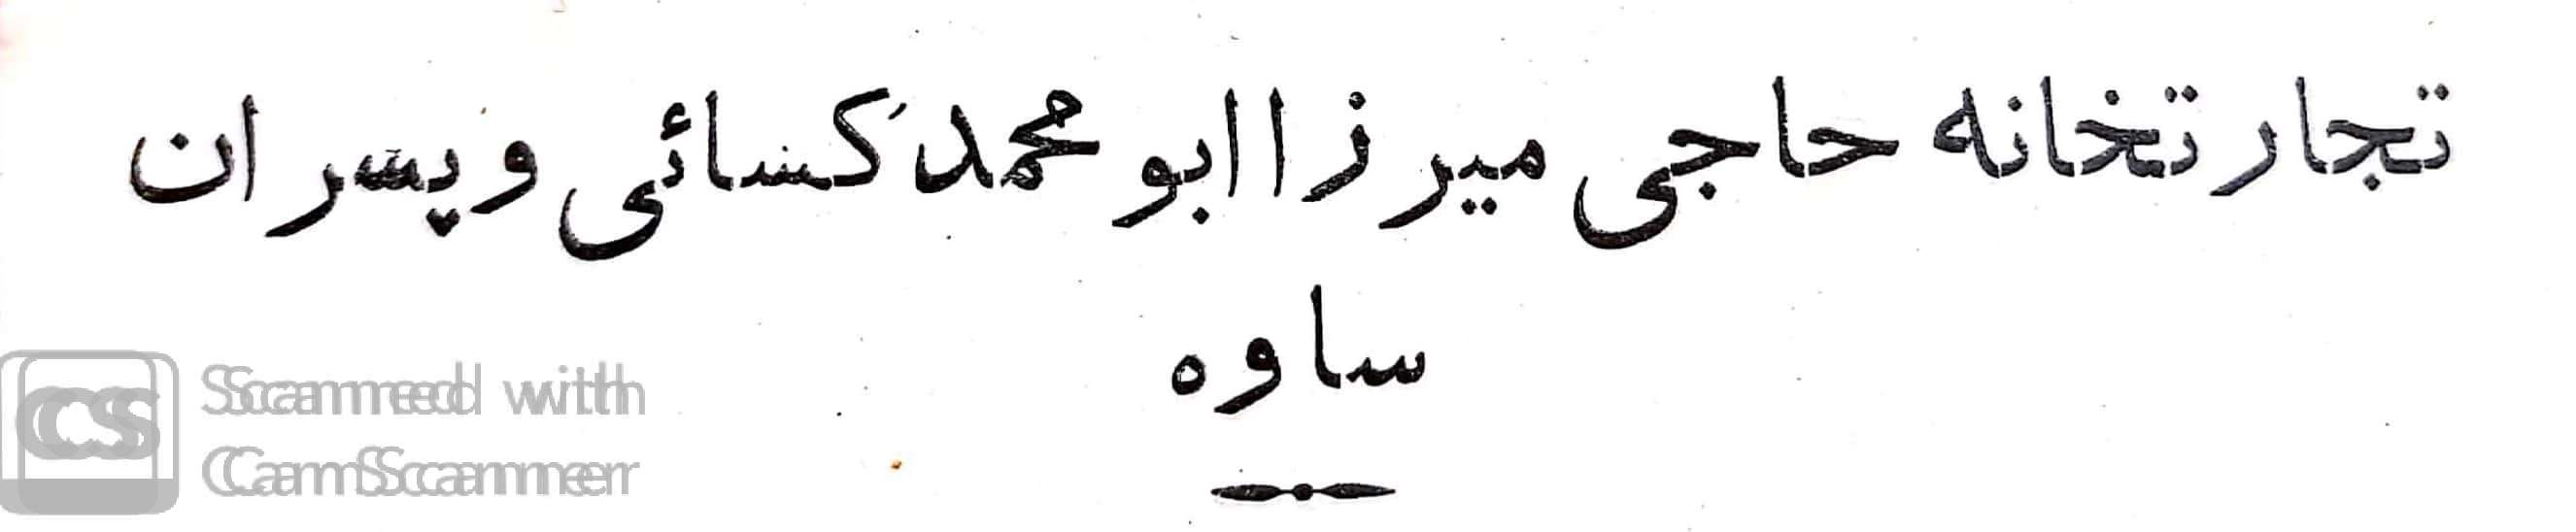 تجارتخانه حاجی میرزا ابو محمد کسائی و پسران
ساوه
Scanned with
CamScanner